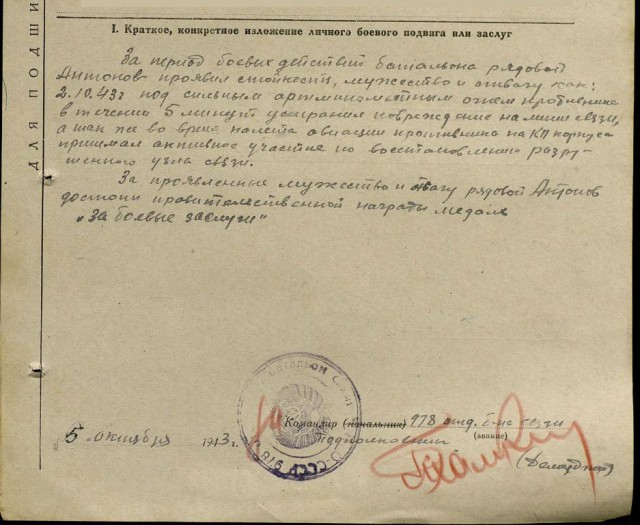 ДЛЯ ПОДШИ
I. Краткое, конкретное изложение личного боевого подвига или заслуг
За период боевых действий батальона рядовой
Антонов проявил стойкость, мужество и отвагу как:
2.10.43г под сильным артминометным огнем противника
в течении 5 минут устранил повреждение на линии связи,
а так же во время налета авиации противника на КП корпуса
принимал активное участие по восстановлению разру-
шенного узла связи.
За проявленные мужество и отвагу рядовой Антонов
достоин правительственной награды медаль
„За боевые заслуги"
батальон связи
СССР 978
Командир (начальник) 978 отд. б-на связи
5 октября 1943 г. подполковник
(звание)